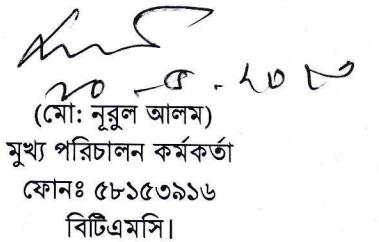 (মো: নূরুল আলম)
মুখ্য পরিচালন কর্মকর্তা
ফোনঃ ৫৮১৫৩৯১৬
বিটিএমসি।